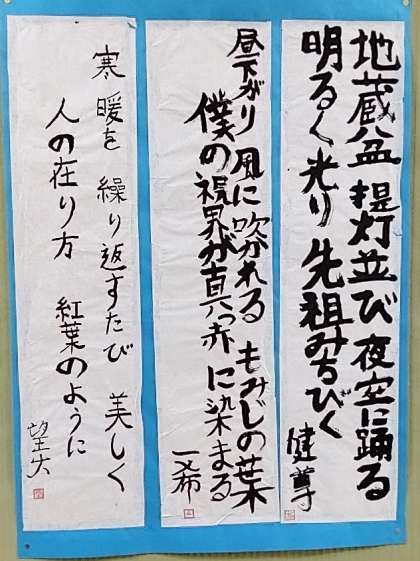 地蔵盆 提灯並び 夜空に踊る
明るく光り 先祖みちびく
健尊
昼下がり 風に吹かれる もみじの葉
僕の視界が真っ赤に染まる
一希
寒暖を 繰り返すたび 美しく
人の在り方 紅葉のように
望大